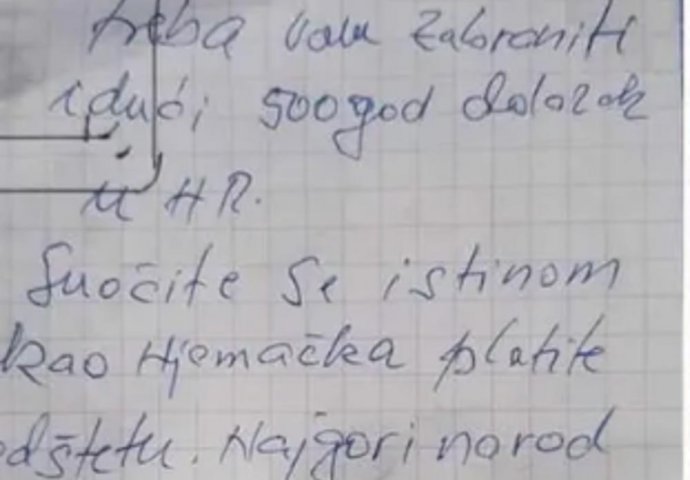 treba vam zabraniti
idući 500 god dolazak
u HR.
Suočite se istinom
kao Njemačka platite
odštetu. Najgori narod